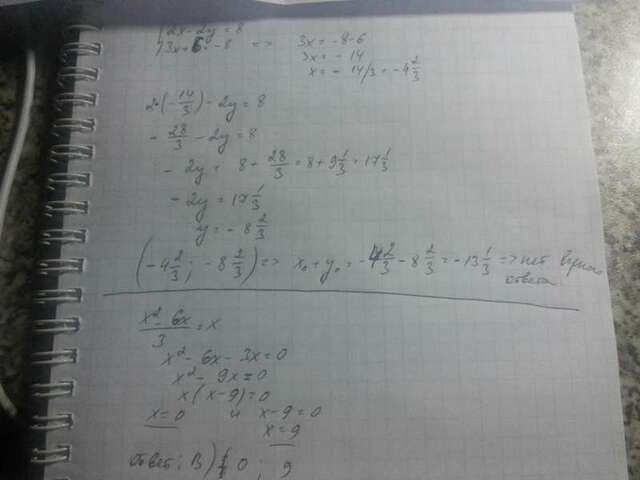 2x-2y=8
3x+6=-8 => 3x=-8-6
3x=-14
x=-14/3=-4 2/3
2·(-14/3)-2y=8
-28/3-2y=8
-2y=8+28/3=8+9 1/3=17 1/3
-2y=17 1/3
y=-8 2/3
(-4 2/3; -8 2/3)=> x₀+y₀=-4 2/3-8 2/3=-13 1/3=>нет
ответа
x²-6x/3=x
x²-6x-3x=0
x²-9x=0
x(x-9)=0
x=0 и x-9=0
x=9
ответ: B) 0; 9